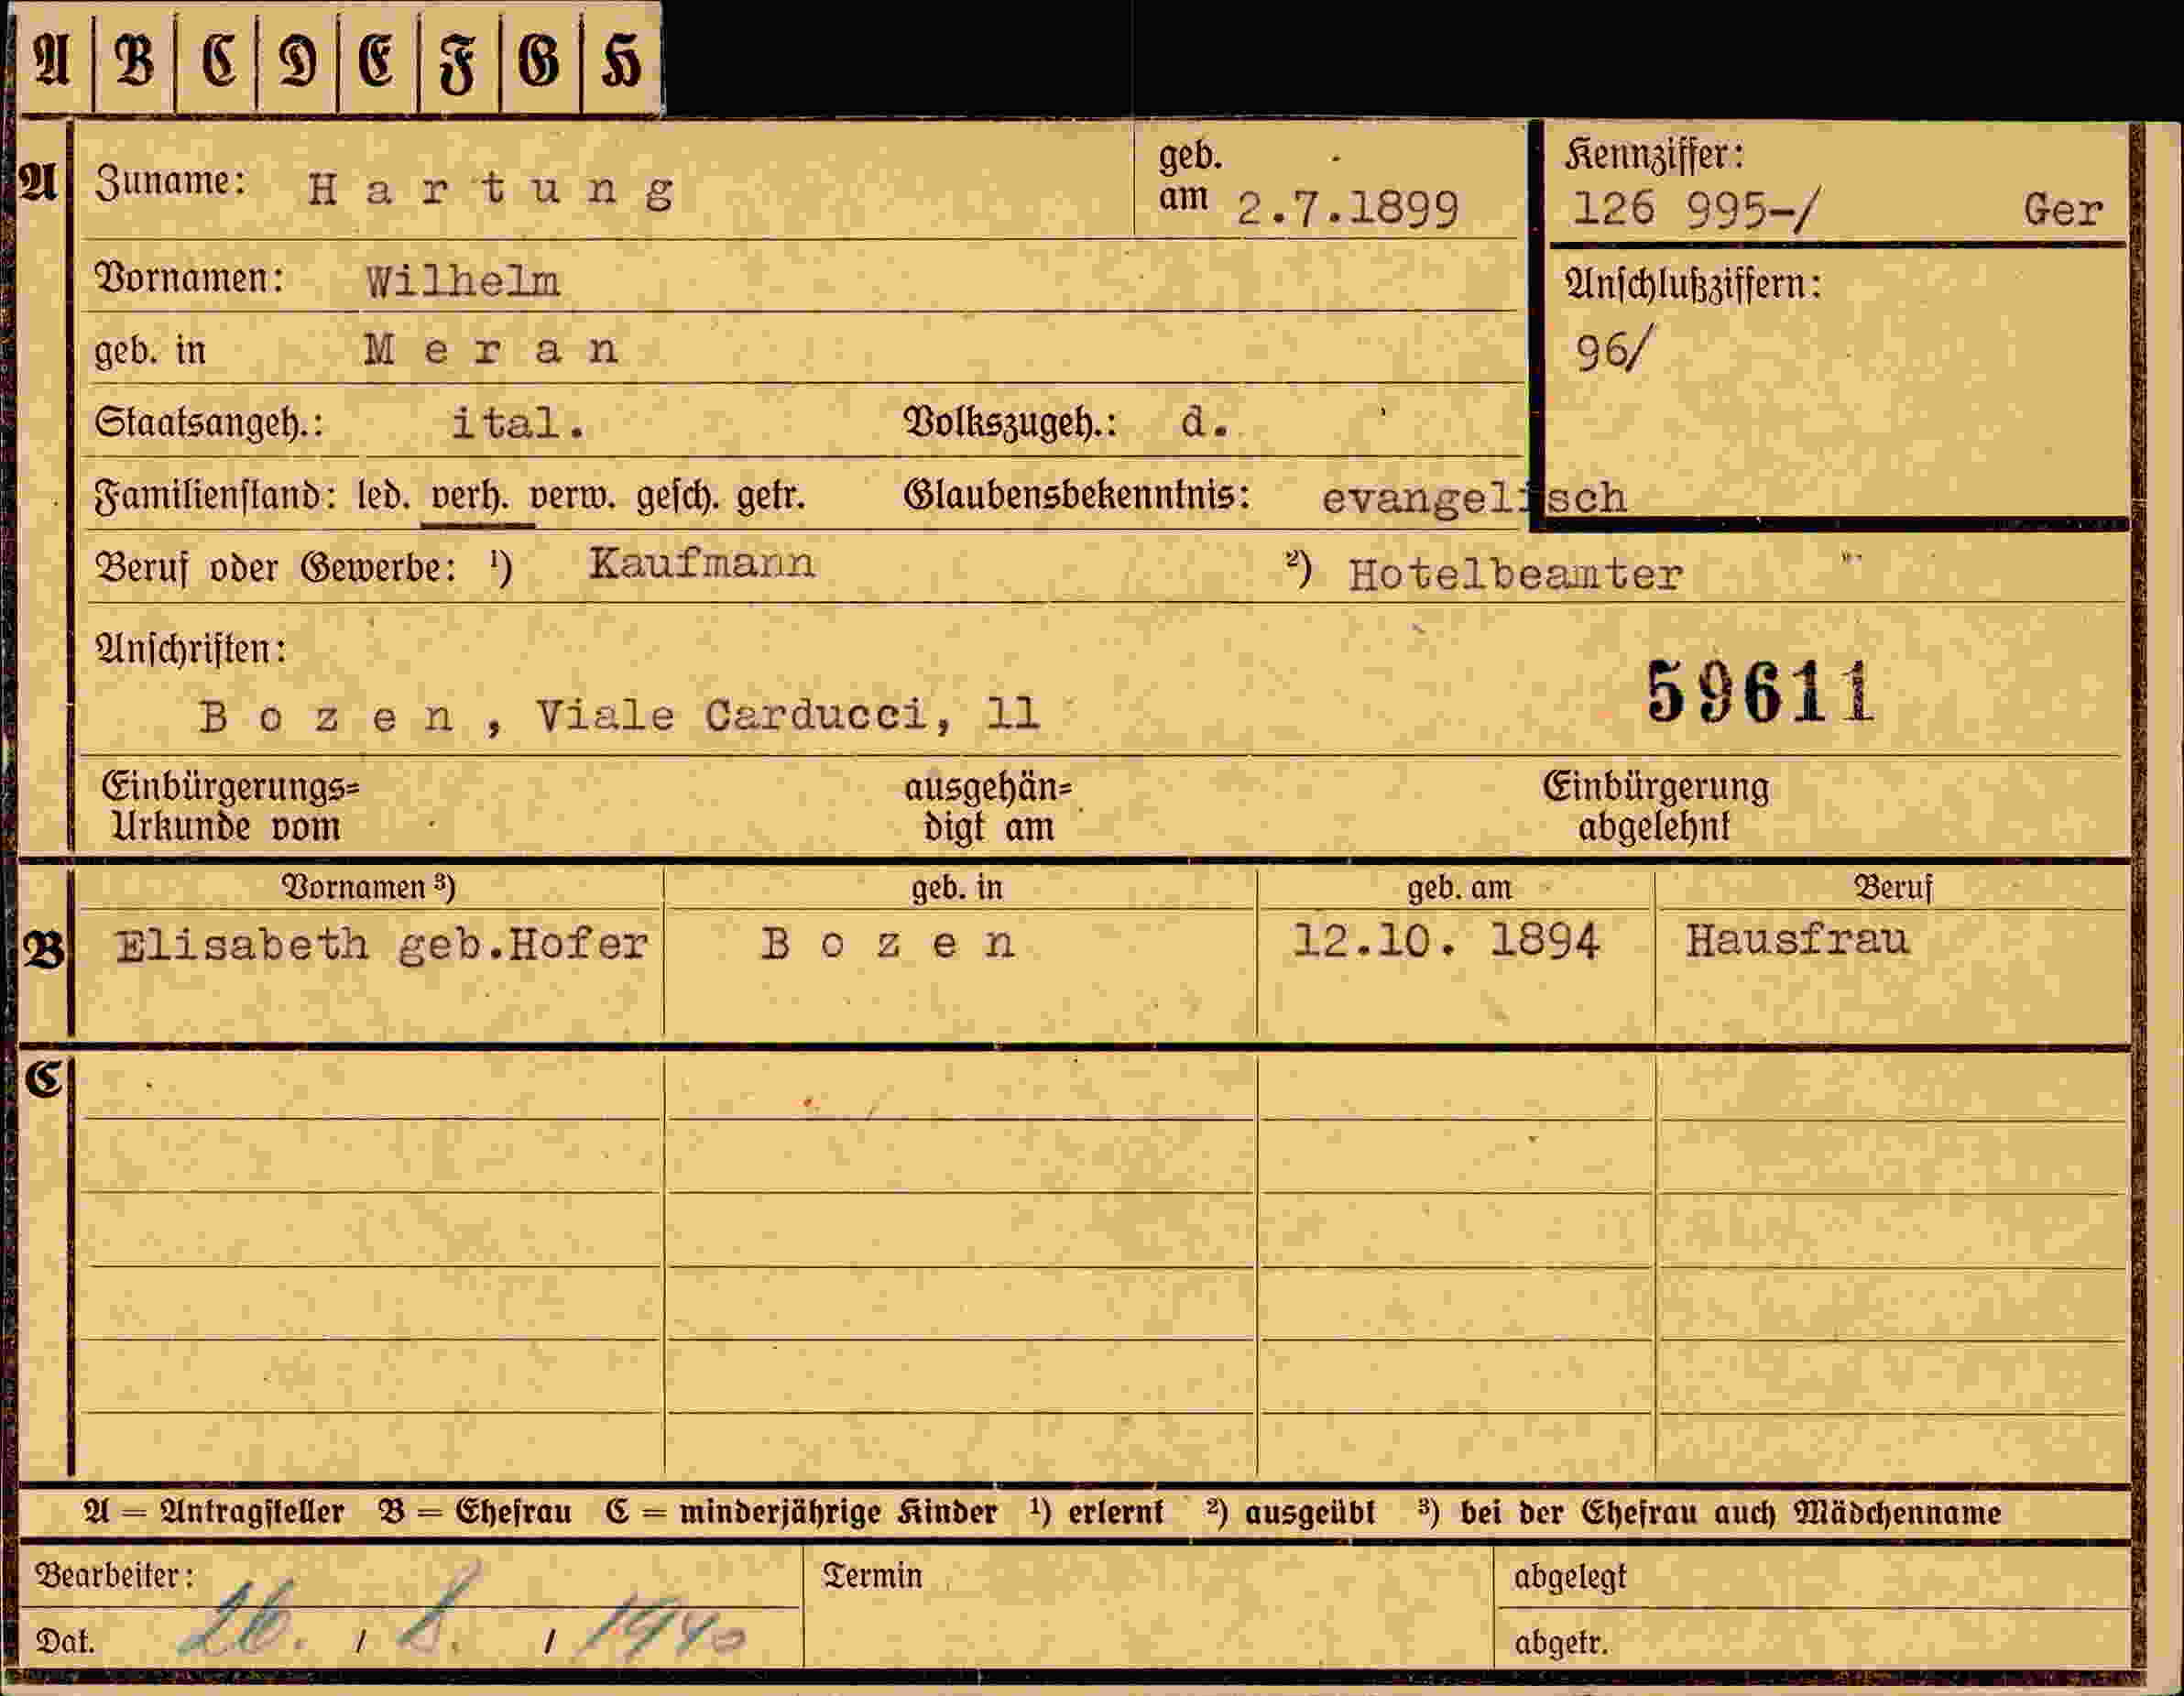 A B C D E F G H
A Zuname: Hartung geb. am 2.7.1899 Kennziffer: 126 995-/ Ger
Vornamen: Wilhelm Anschlußziffern:
geb. in Meran 96/
Staatsangeh.: ital. Volkszugeh.: d.
Familienstand: led. verh. verw. gesch. getr. Glaubensbekenntnis: evangelisch
Beruf oder Gewerbe: ¹) Kaufmann ²) Hotelbeamter
Anschriften:
59611
Bozen, Viale Carducci, 11
Einbürgerungs= ausgehän= Einbürgerung
Urkunde vom digt am abgelehnt
Vornamen ³) geb. in geb. am Beruf
B Elisabeth geb.Hofer Bozen 12.10. 1894 Hausfrau
C
A = Antragsteller B = Ehefrau C = minderjährige Kinder ¹) erlernt ²) ausgeübt ³) bei der Ehefrau auch Mädchenname
Bearbeiter: Termin abgelegt
Dat. 26. / 8. / 1940 abgetr.